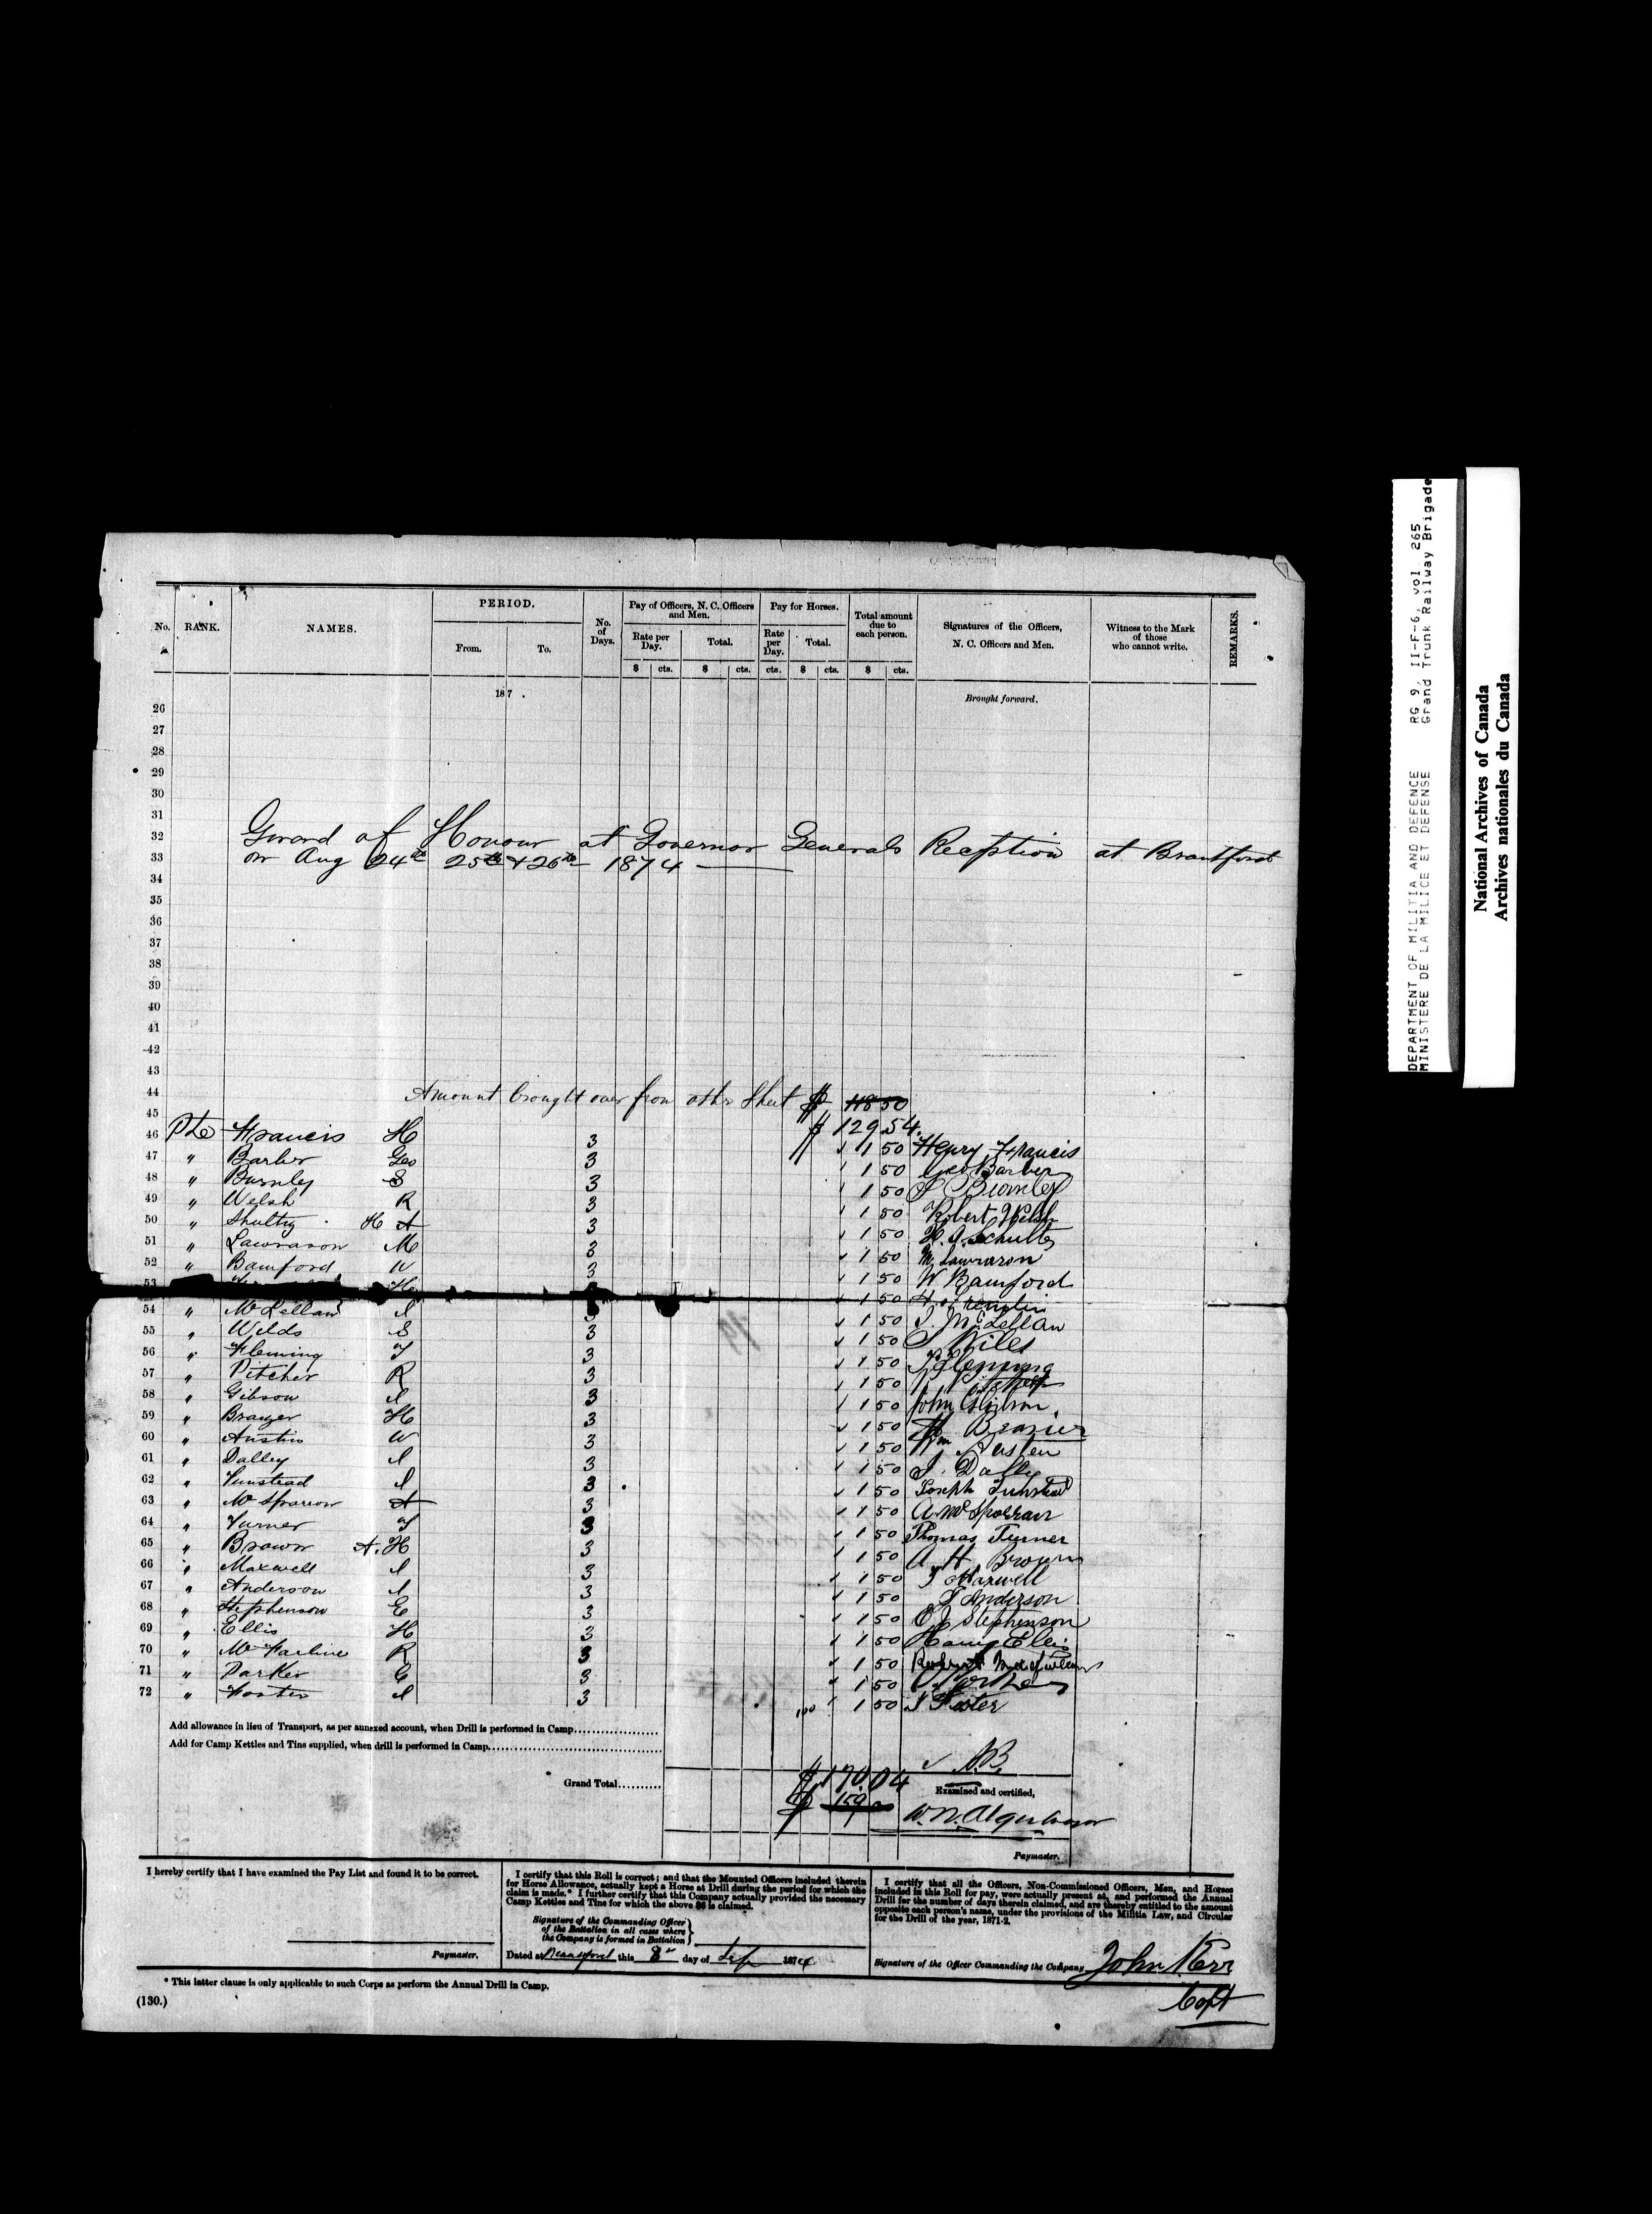 No. RANK. NAMES. PERIOD. No. of Days. Pay of Officers, N. C. Officers and Men. Pay for Horses. Total amount due to each person. Signatures of the Officers, N. C. Officers and Men. Witness to the Mark of those who cannot write. REMARKS.
From. To. Rate per Day. Total. Rate per Day. Total.
$ cts. $ cts. cts. $ cts. $ cts.
187 . Brought forward.
26
27
28
29
30
31
32 Guard of Honour at Governor Generals Reception at Brantford
33 on Aug 24th 25th & 26th 1874
34
35
36
37
38
39
40
41
42
43
44 Amount brought over from other Sheet $ 118 50
45 $ 129.54.
46 Pte Francis H 3 1 50 Henry Francis
47 " Barber Geo 3 1 50 Geo Barber
48 " Burnley S 3 1 50 S Burnley
49 " Welsh R 3 1 50 Robert Welsh
50 " Shultz H A 3 1 50 H. A. Schultz
51 " Lawrason M 3 1 50 M Lawrason
52 " Bamford W 3 1 50 W Bamford
53 H 1 50
54 " McLellan J 3 1 50 J. McLellan
55 " Wilds S 3 1 50 S Wiles
56 " Fleming T 3 1 50 T Flemming
57 " Pitcher R 3 1 50 R Pitcher
58 " Gibson J 3 1 50 John Gibson.
59 " Brazer H 3 1 50 H Brazier
60 " Austin W 3 1 50 Wm Austen
61 " Dalley J 3 1 50 J. Dally
62 " Tunstead J 3 1 50 Joseph Tunstead
63 " McSparron A 3 1 50 A. McSporran
64 " Turner T 3 1 50 Thomas Turner
65 " Brown A. H 3 1 50 A H Brown
66 " Maxwell J 3 1 50 J Maxwell
67 " Anderson J 3 1 50 J Anderson
68 " Stephenson E 3 1 50 E J Stephenson
69 " Ellis H 3 1 50 Harry Ellis
70 " McFarline R 3 1 50 Robert
71 " Parker G 3 1 50
72 " Foster J 3 1 50 J Foster
Add allowance in lieu of Transport, as per annexed account, when Drill is performed in Camp
Add for Camp Kettles and Tins supplied, when drill is performed in Camp
Grand Total $ 170.04
$ 159
Examined and certified,
Paymaster.
I hereby certify that I have examined the Pay List and found it to be correct.
Paymaster.
I certify that this Roll is correct; and that the Mounted Officers included therein
for Horse Allowance, actually kept a Horse at Drill during the period for which the
claim is made.* I further certify that this Company actually provided the necessary
Camp Kettles and Tins for which the above $6 is claimed.
Signature of the Commanding Officer
of the Battalion in all cases where
the Company is formed in Battalion
Dated at Brantford this 8th day of Sep 1874
I certify that all the Officers, Non-Commissioned Officers, Men, and Horses
included in this Roll for pay, were actually present at, and performed the Annual
Drill for the number of days therein claimed, and are thereby entitled to the amount
opposite each person's name, under the provisions of the Militia Law, and Circular
for the Drill of the year, 1871-2.
Signature of the Officer Commanding the Company John Kerr
Capt
* This latter clause is only applicable to such Corps as perform the Annual Drill in Camp.
(130.)
DEPARTMENT OF MILITIA AND DEFENCE RG 9, II-F-6, vol 265
MINISTERE DE LA MILICE ET DEFENSE Grand Trunk Railway Brigade
National Archives of Canada
Archives nationales du Canada